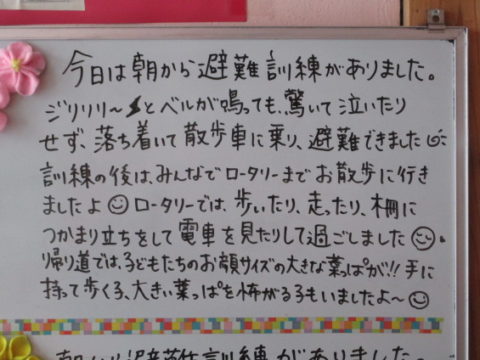 今日は朝から避難訓練がありました。
ジリリリ〜⚡とベルが鳴っても、驚いて泣いたり
せず、落ち着いて散歩車に乗り、避難できました
訓練の後は、みんなでロータリーまでお散歩に行き
ましたよ☺ロータリーでは、歩いたり、走ったり、柵に
つかまり立ちをして電車を見たりして過ごしました☺
帰り道では、子どもたちのお顔サイズの大きな葉っぱが!!手に
持って歩く子、大きい葉っぱを怖がる子もいましたよ〜☺
朝から避難訓練がありました